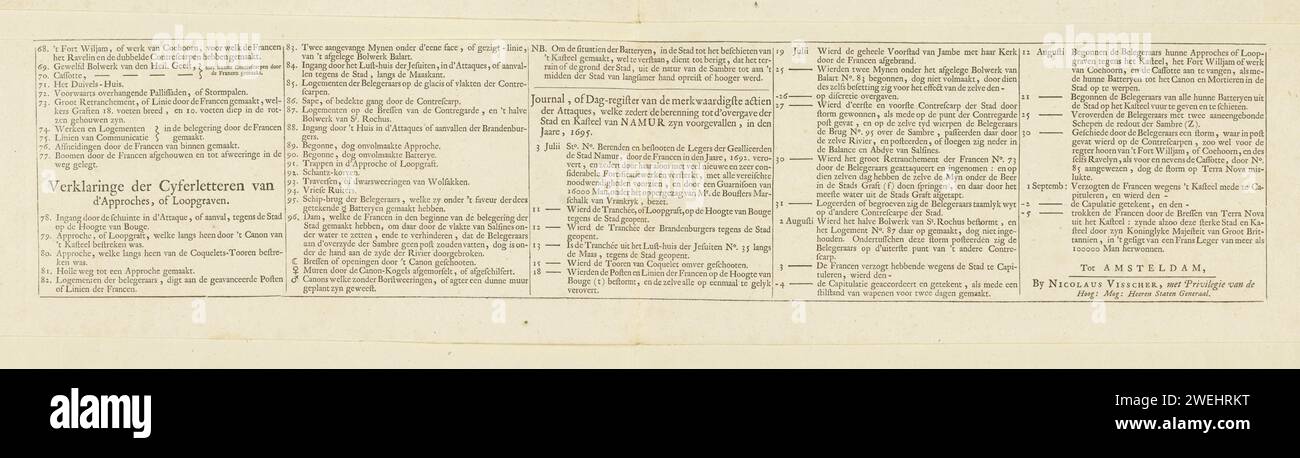 68. 't Fort Wiljam, of werk van Coehoorn, voor welk de Francen
het Ravelin en de dubbelde Contrescarpen hebben gemaakt.
69. Gewelfd Bolwerk van den Heil. Geest,
70. Cassotte, — — — — — de Francen gemaakt.
71. Het Duivels-Huis.
72. Voorwaarts overhangende Pallissaden, of Stormpalen.
73. Groot Retranchement, of Linie door de Francen gemaakt, wel-
kers Graften 18. voeten breed, en 10. voeten diep in de rot-
zen gehouwen zyn.
74. Werken en Logementen } in de belegering door de Francen
75. Linien van Communicatie } gemaakt.
76. Afsnydingen door de Francen van binnen gemaakt.
77. Boomen door de Francen afgehouwen en tot afweeringe in de
weg gelegt.
Verklaringe der Cyferletteren van
d'Approches, of Loopgraven.
78. Ingang door de schuinte in d'Attaque, of aanval, tegens de Stad
op de Hoogte van Bouge.
79. Approche, of Loopgraft, welke langs heen door 't Canon van
't Kasteel bestreken was.
80. Approche, welke langs heen van de Coquelets-Tooren bestre-
ken was.
81. Holle weg tot een Approche gemaakt.
82. Logementen der belegeraars, digt aan de geavanceerde Posten
of Linien der Francen.
83. Twee aangevange Mynen onder d'eene face, of gezigt-linie,
van 't afgelege Bolwerk Balart.
84. Ingang door het Lust-huis der Jesuiten, in d'Attaques, of aanval-
len tegens de Stad, langs de Maaskant.
85. Logementen der Belegeraars op de glacis of vlakten der Contre-
scarpen.
86. Sape, of bedekte gang door de Contrescarp.
87. Logementen op de Bressen van de Contregarde, en 't halve
Bolwerk van St. Rochus.
88. Ingang door 't Huis in d'Attaques of aanvallen der Brandenbur-
gers.
89. Begonne, dog onvolmaakte Approche.
90. Begonne, dog onvolmaakte Batterye.
91. Trappen in d'Approche of Loopgraft.
92. Schantz-korven.
93. Traversen, of dwarsweeringen van Wolsakken.
94. Vriese Ruiters.
95. Schip-brug der Belegeraars, welke zy onder 't faveur der dees
getekende Batteryen gemaakt hebben.
96. Dam, welke de Francen in den beginne van de belegering der
Stad gemaakt hebben, om daar door de vlakte van Salsines on-
der water te zetten, ende te verhinderen, dat de Belegeraars
aan d'overzyde der Sambre geen post zouden vatten, dog is on-
der de hand aan de zyde der Rivier doorgebroken.
☾ Bressen of openingen door 't Canon geschooten.
♀ Muren door de Canon-Kogels afgemorselt, of afgeschilfert.
♂ Canons welke zonder Borstweeringen, of agter een dunne muur
geplant zyn geweest.
NB. Om de situatien der Batteryen, in de Stad tot het beschieten van
't Kasteel gemaakt, wel te verstaan, dient tot berigt, dat het ter-
rain of de grond der Stad, uit de natur van de Sambre tot aan 't
midden der Stad van langsamer hand opreist of hooger werd.
Journal, of Dag-register van de merkwaardigste actien
der Attaques, welke zedert de berenning tot d'overgave der
Stad en Kasteel van NAMUR zyn voorgevallen, in den
Jaare, 1695.
3 Julii St°. N°. Berenden en beslooten de Legers der Geallieerden
de Stad Namur, door de Francen in den Jaare, 1692. vero-
vert, en zedert daar alöor met veel nieuwe en zeer con-
siderabele Fortificatiewerken versterkt, met alle vereischte
noodwendigheden voorzien, en door een Guarnisoen van
16000 Man, onder het oppergezag van Mr. de Bouflers Mar-
schalk van Vrankryk, bezet.
11 — Wierd de Tranchée, of Loopgraft, op de Hoogte van Bouge
tegens de Stad geopent.
12 — Wierd de Tranchée der Brandenburgers tegens de Stad
geopent.
13 — Is de Tranchée uit het Lust-huis der Jesuiten N°. 35 langs
de Maas, tegens de Stad geopent.
15 — Wierd de Tooren van Coquelet onver geschooten.
18 — Wierden de Posten en Linien der Francen op de Hoogte van
Bouge (t) bestormt, en de zelve alle op eenmaal te gelyk
verovert.
19 Julii Wierd de geheele Voorstad van Jambe met haar Kerk
door de Francen afgebrand.
25 — Wierden twee Mynen onder het afgelege Bolwerk van
Balart N°. 83 begonnen, dog niet volmaakt, door dien
des zelfs besetting zig voor het effect van de zelve den -
-26 — op discretie overgaven.
27 — Wierd d'eerste en voorste Contrescarp der Stad door
storm gewonnen, als mede op de punt der Contregarde
post gevat, en op de zelve tyd wierpen de Belegeraars
de Brug N°. 95 over de Sambre, passeerden daar door
de zelve Rivier, en posteerden, of sloegen zig neder in
de Balance en Abdye van Salsines.
30 — Wierd het groot Retranchement der Francen N°. 73
door de Belegeraars geattaqueert en ingenomen: en op
dien zelven dag hebben de zelve de Myn onder de Beer
in de Stads Graft (f) doen springen, en daar door het
meeste water uit de Stads Graft afgetapt.
31 — Logeerden of begroeven zig de Belegeraars taamlyk wyt
op d'andre Contrescarpe der Stad.
2 Augusti Wierd het halve Bolwerk van St. Rochus bestormt, en
het Logement N°. 87 daar op gemaakt, dog niet inge-
houden. Ondertusschen deeze storm posteerden zig de
Belegeraars op d'uiterste punt van 't andere Contre-
scarp.
3 — De Francen verzogt hebbende wegens de Stad te Capi-
tuleren, wierd den -
-4 — de Capitulatie geaccordeert en getekent, als mede een
stilstand van wapenen voor twee dagen gemaakt.
12 Augusti Begonnen de Belegeraars hunne Approches of Loop-
graven tegens het Kasteel, het Fort Wiljam of werk
van Coehoorn, en de Cassotte aan te vangen, als me-
de hunne Batteryen tot het Canon en Mortieren in de
Stad op te werpen.
21 — Begonnen de Belegeraars van alle hunne Batteryen uit
de Stad op het Kasteel vuur te geven en te schieten.
25 — Veroverden de Belegeraars met twee aaneengebonde
Schepen de redout der Sambre (Z).
30 — Geschiede door de Belegeraars een storm, waar in post
gevat wierd op de Contrescarpen, zoo wel voor de
regter hoorn van 't Fort Wiljam, of Coehoorn, en des
selfs Ravelyn, als voor en nevens de Cassotte, door N°.
85 aangewezen, dog de storm op Terra Nova mis-
lukte.
1 Septemb: Verzogten de Francen wegens 't Kasteel mede te Ca-
pituleren, en wierd den -
-2 — de Capitulatie getekent, en den -
-5 — trokken de Francen door de Bressen van Terra Nova
uit het Kasteel: zynde alzoo deze sterke Stad en Ka-
steel door zyn Koninglyke Majesteit van Groot Brit-
tannien, in 't gesigt van een Frans Leger van meer als
100000 Man herwonnen.
Tot AMSTELDAM,
By NICOLAUS VISSCHER, met Privilegie van de
Hoog: Mog: Heeren Staten Generaal.
alamy
Image ID: 2WEHRKT
www.alamy.com